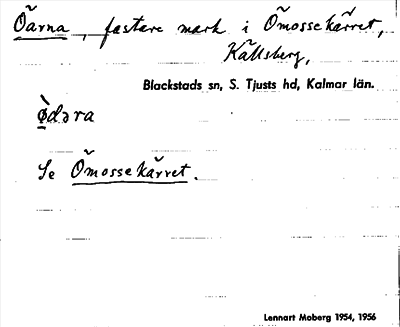 Öarna, fastare mark i Ömossekärret,
Källsberg,
Blackstads sn, S. Tjusts hd, Kalmar län.
ø̀dəra
Se Ömossekärret.
Lennart Moberg 1954, 1956